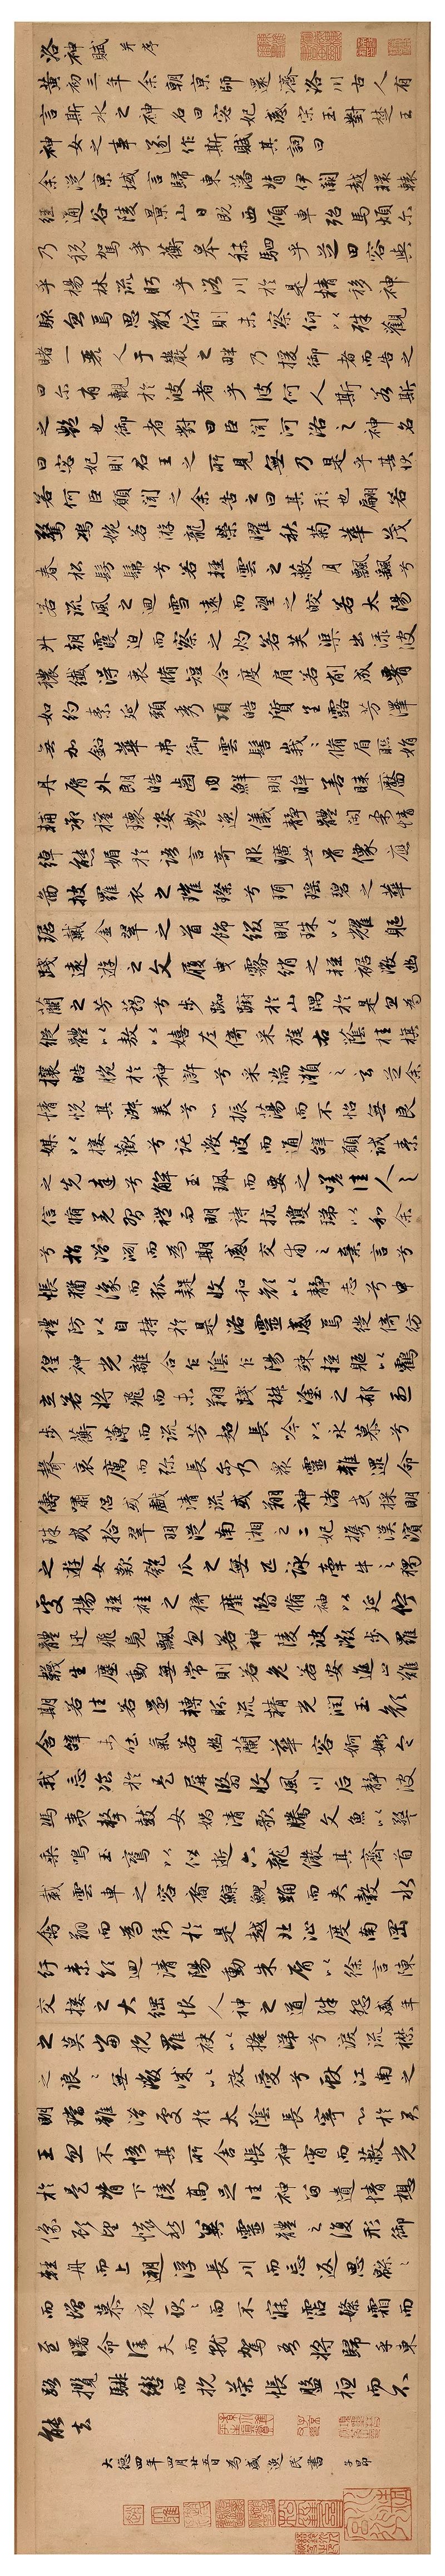 洛神賦 并序
黃初三年余朝京師還濟洛川古人有
言斯水之神名曰宓妃感宋玉對楚王
神女之事遂作斯賦其詞曰
余從京域言歸東藩背伊闕越轘轅
經通谷陵景山日既西傾車殆馬煩尒
乃稅駕乎蘅皋秣駟乎芝田容與
乎楊林流眄乎洛川於是精移神
駭忽焉思散俯則未察仰以殊觀
睹一麗人于巖之畔乃援御者而告之
曰尒有覿於彼者乎彼何人斯若斯
之豔也御者對曰臣聞河洛之神名
曰宓妃則君王之所見無乃是乎其狀
若何臣願聞之余告之曰其形也翩若
驚鴻婉若游龍榮曜秋菊華茂
春松髣髴兮若輕雲之蔽月飄颻兮
若流風之迴雪遠而望之皎若太陽
升朝霞迫而察之灼若芙蕖出淥波
穠纖得衷脩短合度肩若削成腰
如約素延頸秀項皓質呈露芳澤
無加鉛華弗御雲髻峩峩脩眉聯娟
丹脣外朗皓齒內鮮明眸善睞靨
輔承權瓌姿豔逸儀靜體閑柔情
綽態媚於語言奇服曠世骨像應
圖披羅衣之璀璨兮珥瑤碧之華
琚戴金翠之首飾綴明珠以耀軀
踐遠遊之文履曳霧綃之輕裾微幽
蘭之芳藹兮步踟躕於山隅於是忽焉
縱體以敖以嬉左倚采旄右蔭桂旗
攘皓腕於神滸兮采湍瀨之玄芝余
情悅其淑美兮心振蕩而不怡無良
媒以接歡兮託微波而通辭願誠素
之先達兮解玉珮而要之嗟佳人之
信脩羌習禮而明詩抗瓊珶以和余
兮指潛淵而為期感交甫之棄言兮
悵猶豫而狐疑收和顏以靜志兮申
禮防以自持於是洛靈感焉徙倚彷
徨神光離合乍陰乍陽竦輕軀以鶴
立若將飛而未翔踐椒塗之郁烈
步蘅薄而流芳超長吟以永慕兮
聲哀厲而弥長尒乃眾靈雜遝命
儔嘯侶或戲清流或翔神渚或採明
珠或拾翠羽從南湘之二妃攜漢濱
之遊女歎匏瓜之無匹詠牽牛之獨
處揚輕袿之猗靡翳脩袖以延佇
體迅飛鳧飄忽若神陵波微步羅
襪生塵動無常則若危若安進止難
期若往若還轉眄流精光潤玉顏
含辭未吐氣若幽蘭華容婀娜令
我忘飡於是屏翳收風川后靜波
馮夷擊鼓女媧清歌騰文魚以警
乘鳴玉鸞以偕逝六龍儼其齊首
載雲車之容裔鯨鯢踊而夾轂水
禽翔而為衛於是越北沚度南岡
紆素領迴清陽動朱脣以徐言陳
交接之大綱恨人神之道殊怨盛年
之莫當抗羅袂以掩涕兮淚流襟
之浪浪無微情以效愛兮獻江南之
明璫雖潛處於太陰長寄心於君
王忽不悟其所舍悵神宵而蔽光
於是背下陵高足往神留遺情想
像顧望懷愁冀靈體之復形御
輕舟而上遡浮長川而忘返思緜緜
而增慕夜耿耿而不寐霑繁霜而
至曙命僕夫而就駕吾將歸乎東
路攬騑轡而抗策悵盤桓而不
能去
大德四年四月廿五日為盛逸民書 子昂